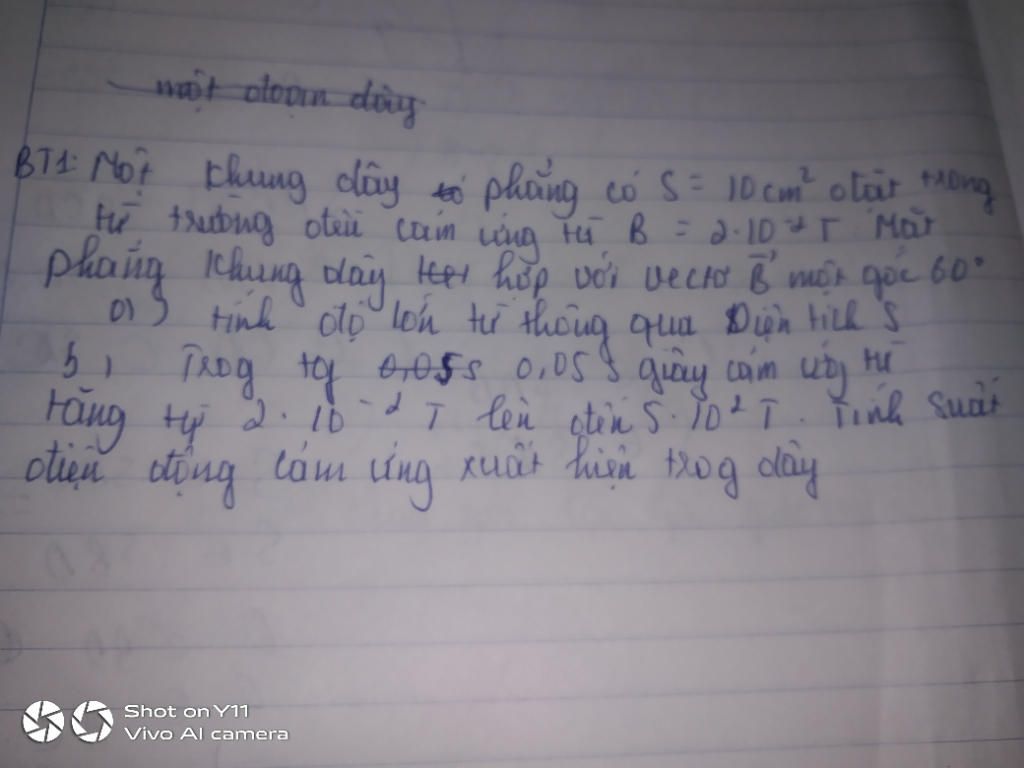 một đoạn dây
BT1: Một khung dây có phẳng có S = 10cm² đặt trong
từ trường đều cảm ứng từ B = 2.10⁻² T Mặt
phẳng khung dây hợp với vectơ B⃗ một góc 60°
a) tính độ lớn từ thông qua Diện tích S
b, Trog tg 0,05s 0,05 s giây cảm ứng từ
tăng từ 2.10⁻² T lên đến 5.10² T. Tính suất
điện động cảm ứng xuất hiện trog dây
Shot on Y11
Vivo AI camera